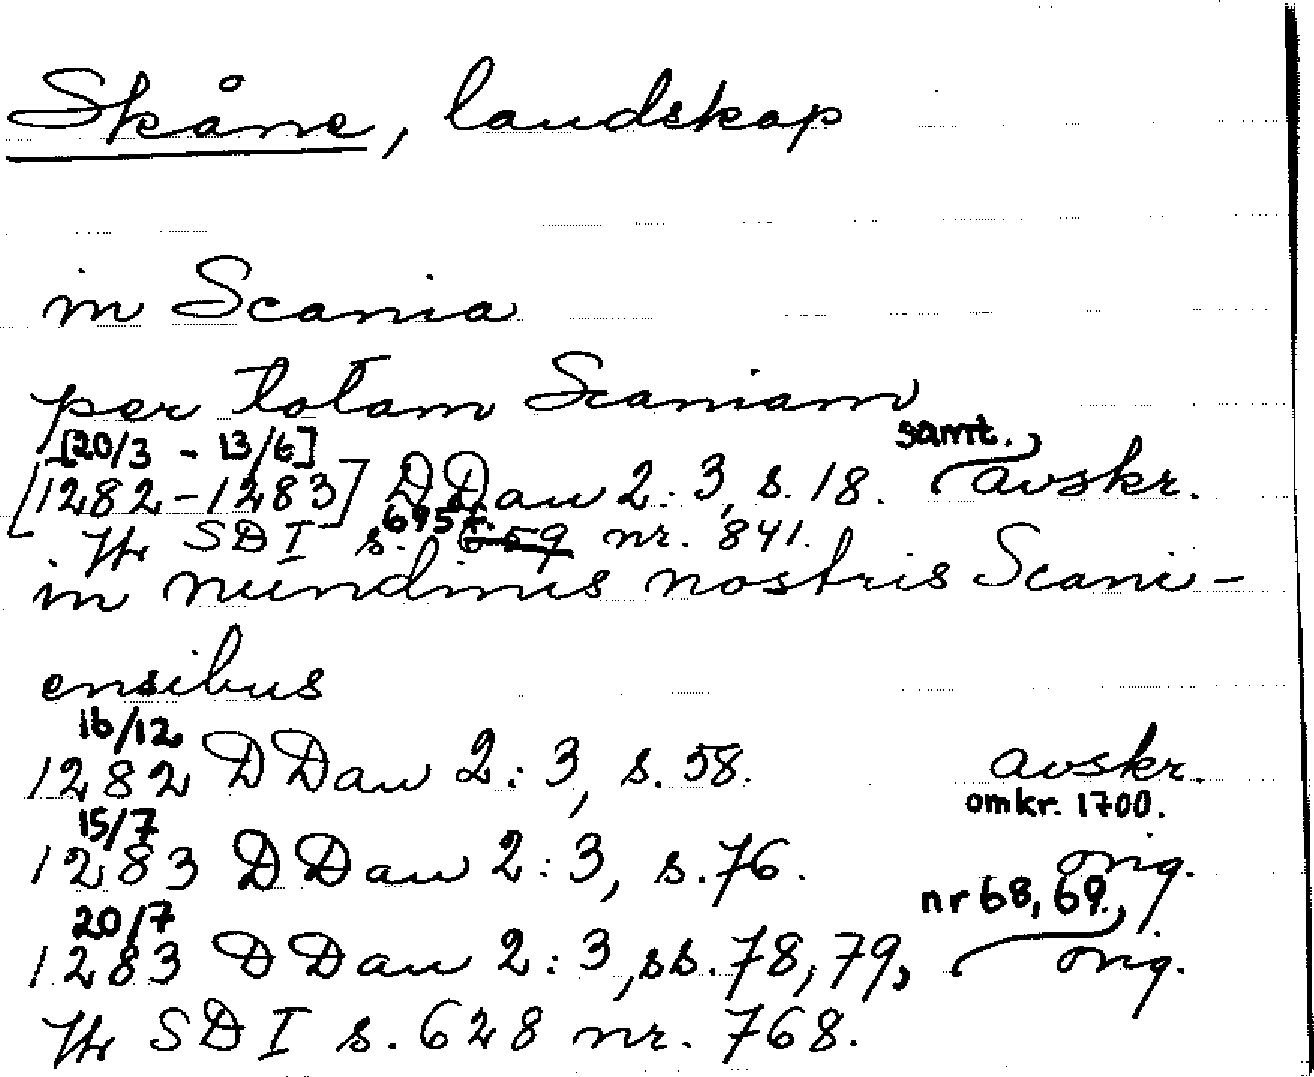 Skåne, landskap
in Scania
per totam Scaniam
[20/3 - 13/6] samt.
[1282-1283] DDan 2:3, s. 18. avskr.
Jfr SD I s. 695 f. 659 nr. 841.
in nundinis nostris Scani-
ensibus
16/12
1282 DDan 2:3, s. 58. avskr.
omkr. 1700.
15/7
1283 DDan 2:3, s. 76. orig.
20/7 nr 68, 69,
1283 DDan 2:3, ss. 78, 79, orig.
Jfr SD I s. 628 nr. 768.